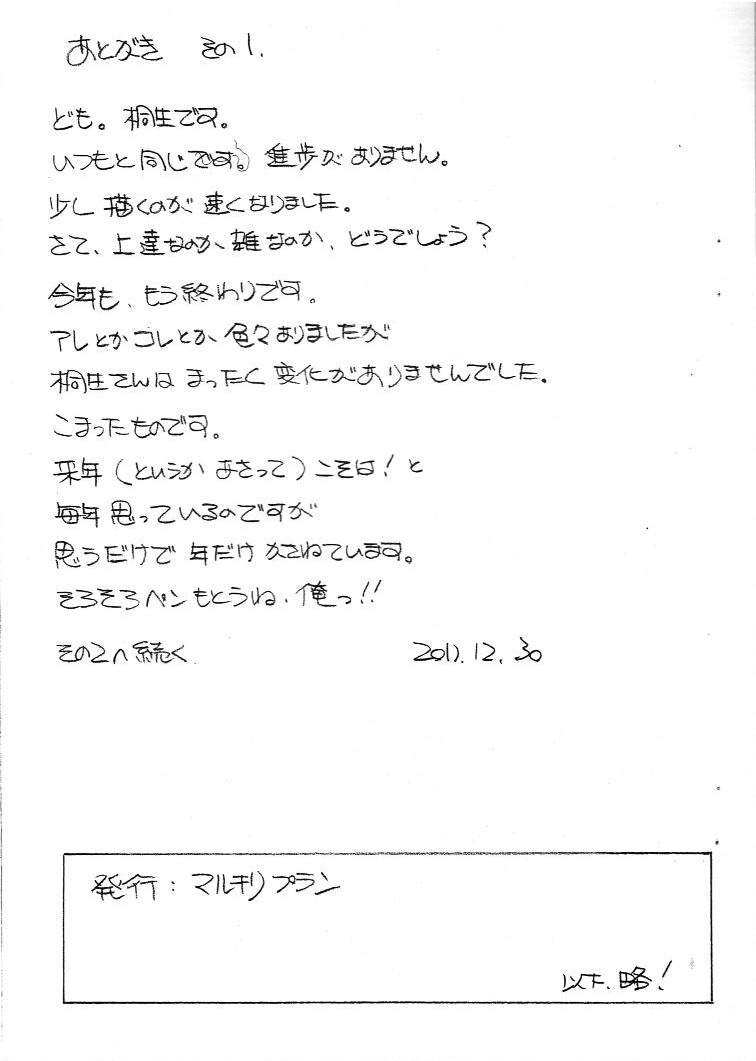 あとがき その1.
ども。桐生です。
いつもと同じです。進歩がありません。
少し描くのが速くなりました。
さて、上達なのか、雑なのか、どうでしょう?
今年も、もう終わりです。
アレとかコレとか、色々ありましたが
桐生さんはまったく変化がありませんでした。
こまったものです。
来年(というかあさって)こそは!と
毎年思っているのですが
思うだけで年だけかさねています。
そろそろペンもとうね、俺っ!!
その2へ続く 2011.12.30
発行:マルチリプラン
以下、略!